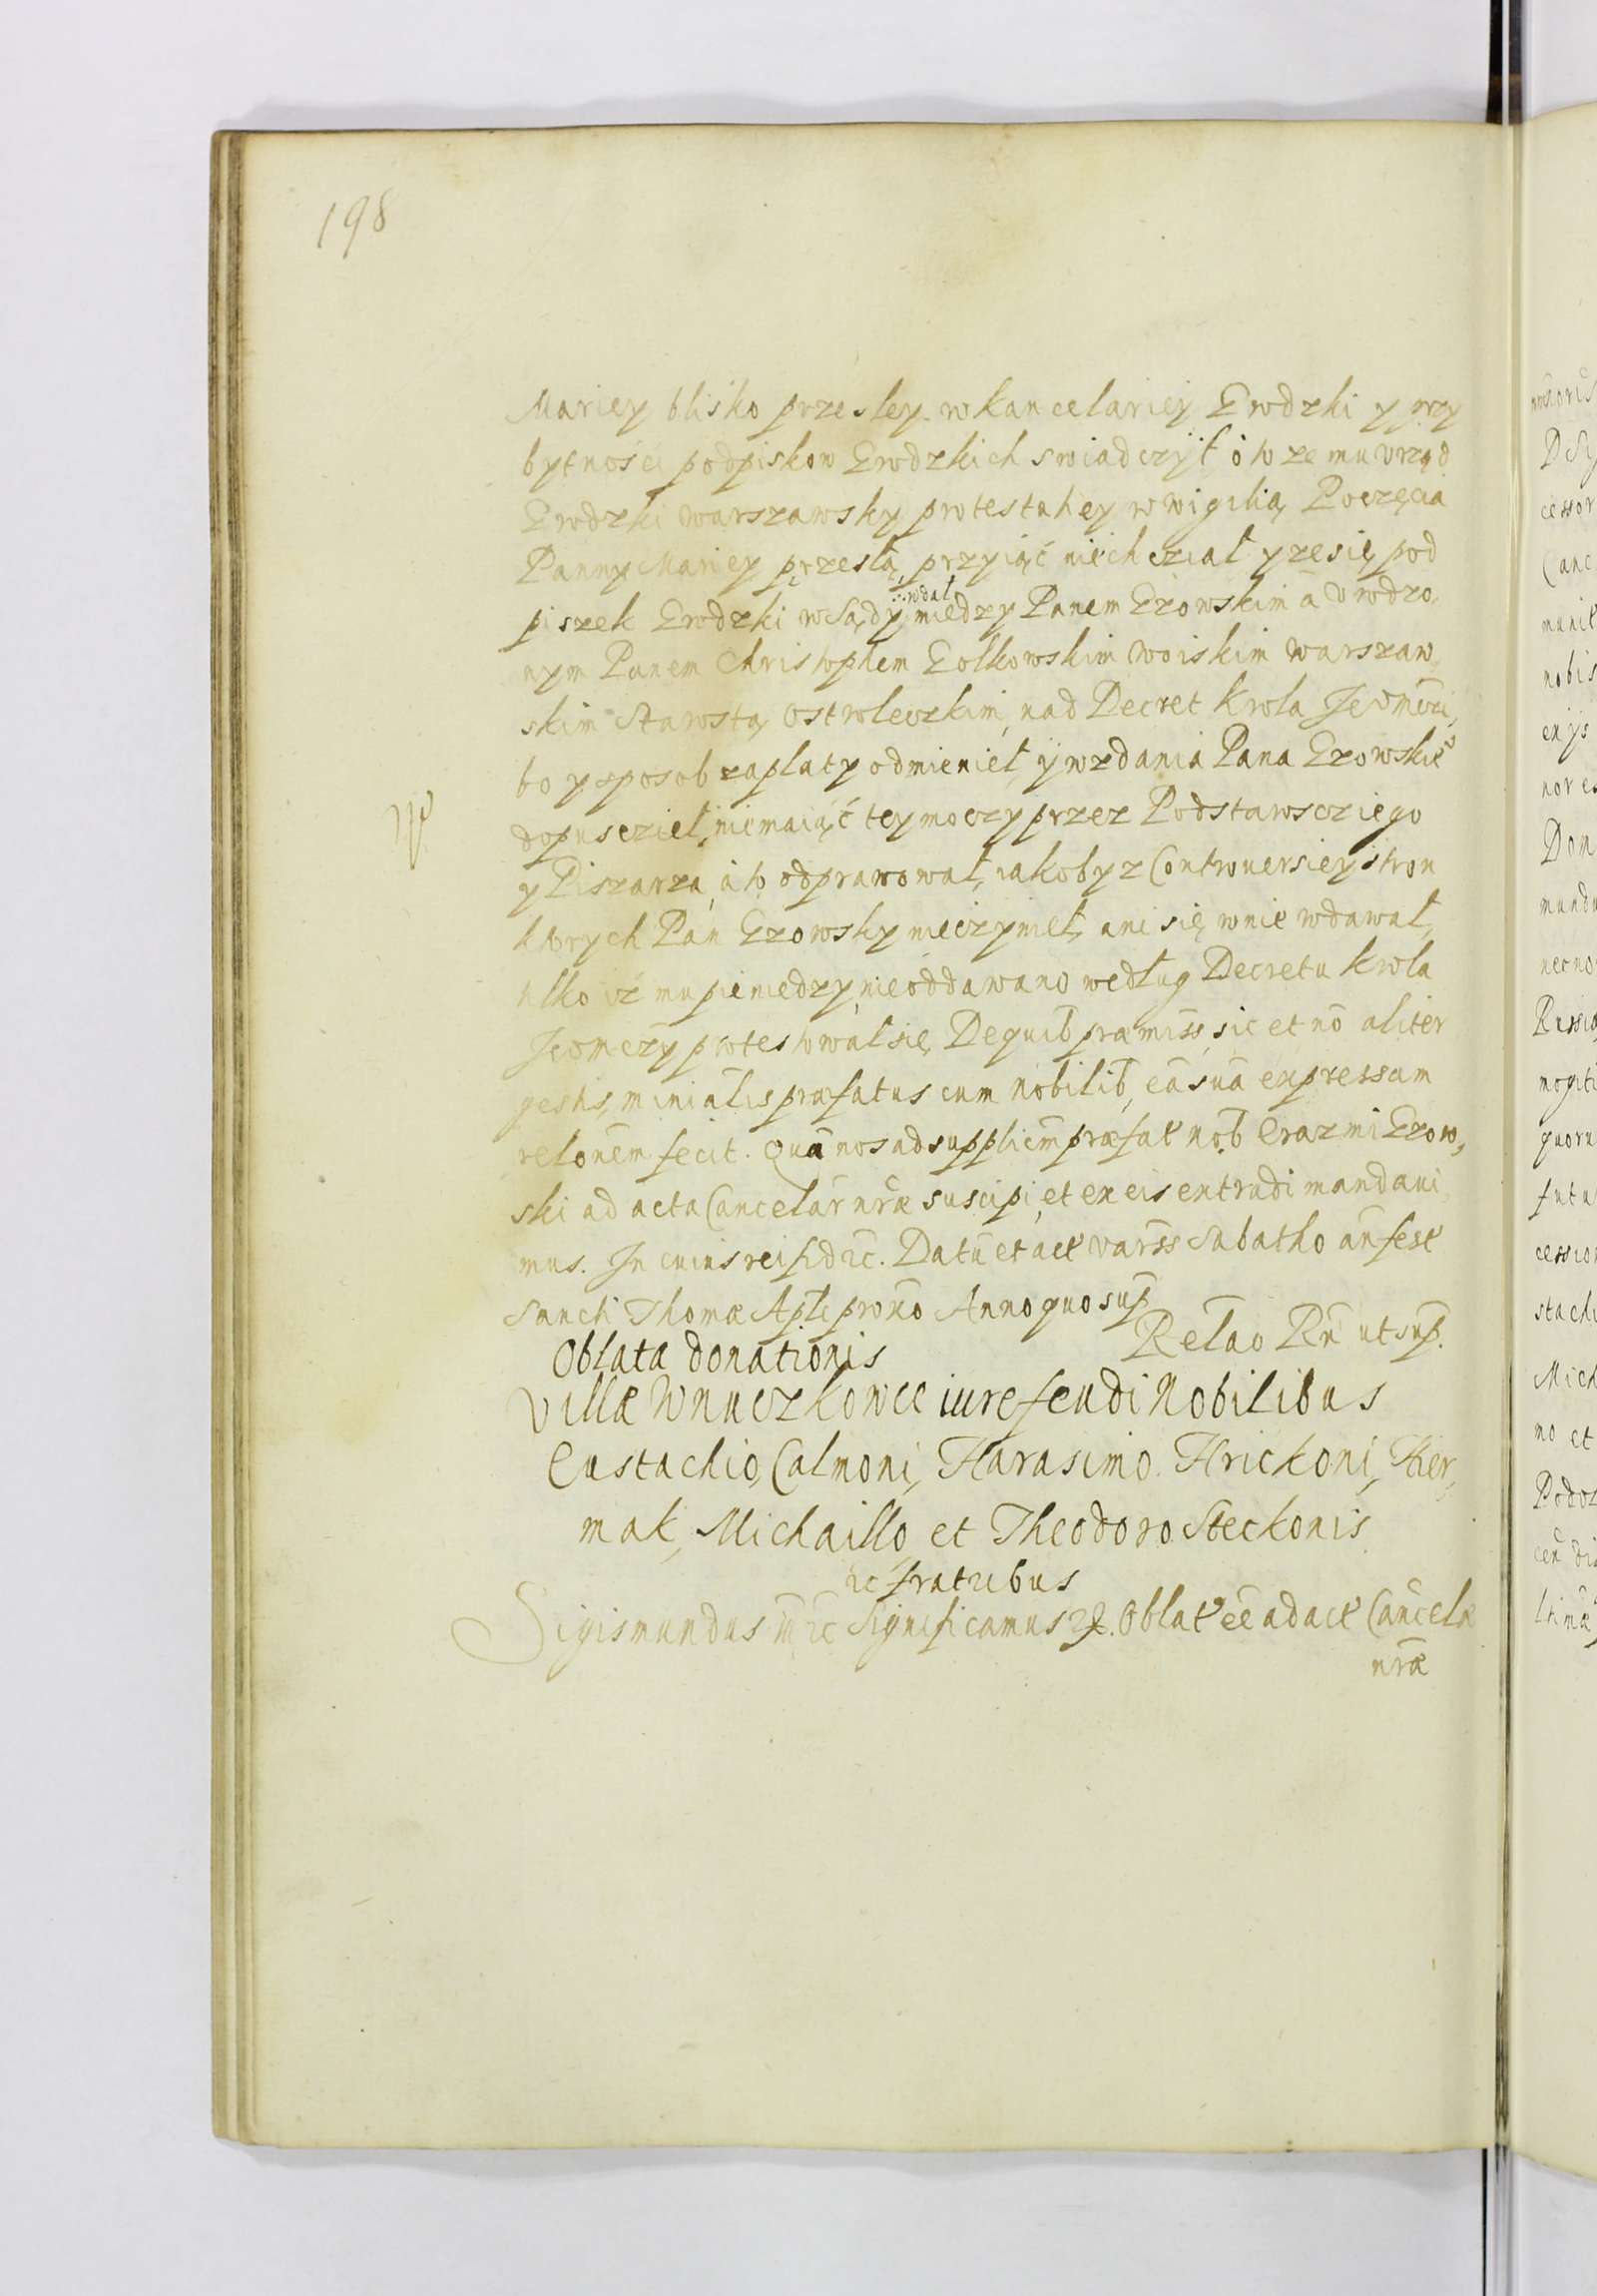 198
Mariey blisko przesley w kancelariey Grodzki y przy
bytności podpiskow Grodzkich swiadczył ò to ze mu vrząd
Grodzki Warszawsky protestuiey w wigilią Poczęcia
Panny Mariey przesłą przyiąć niechcział y ze się pod
wdał
pisek Grodzki w Sądy miedzy Panem Gzowskim à Vrodzo,
nym Panem Christophem Golkowskim Woiskim Warszaw,
skim Starostą Ostroleczkim, nad Decret Krola Jeomczi,
bo y sposob zaplaty odmieniel y wzdania Pana Gzowskie
dopusciel, nie maiąć tey moczy przez Podstawscziego
y Piszarza, à to odprawował, iakoby z Controuersiey stron
ktorych Pan Gzowsky nieczynieł, ani się w nie wdawał,
tilko iż mu pieniedzy nie oddawano według Decretu Krola
Jeomczy protestował się. De quib præmiss, sic et nō aliter
gestis, minialis præfatus cum nobilib, eā suā expressam
relonem fecit. Quā nos ad supplicem præfat nob Erazmi Gzow,
ski ad acta Cancelar nræ suscipi, et ex eis extradi mandaui,
mus. In cuius rei fid ꝛc. Datū et act Varss Sabatho an fest
Sancti Thomæ Apli proxio Anno quo sup
Relao Rn ut sup.
Oblata donationis
Villæ Wnuczkowce iure feudi Nobilibus
Eustachio, Calmoni, Harasimo Hrickoni, Kier,
mak, Michaillo, et Theodoro Steckonis
ꝛc fratribus
Sigismundus III ꝛc Significamus ꝛc. Oblat eē ad act Cancelæ
nræ